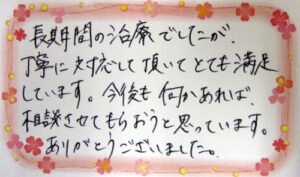 長期間の治療でしたが、
丁寧に対応して頂いてとても満足
しています。今後も何かあれば、
相談させてもらおうと思っています。
ありがとうございました。